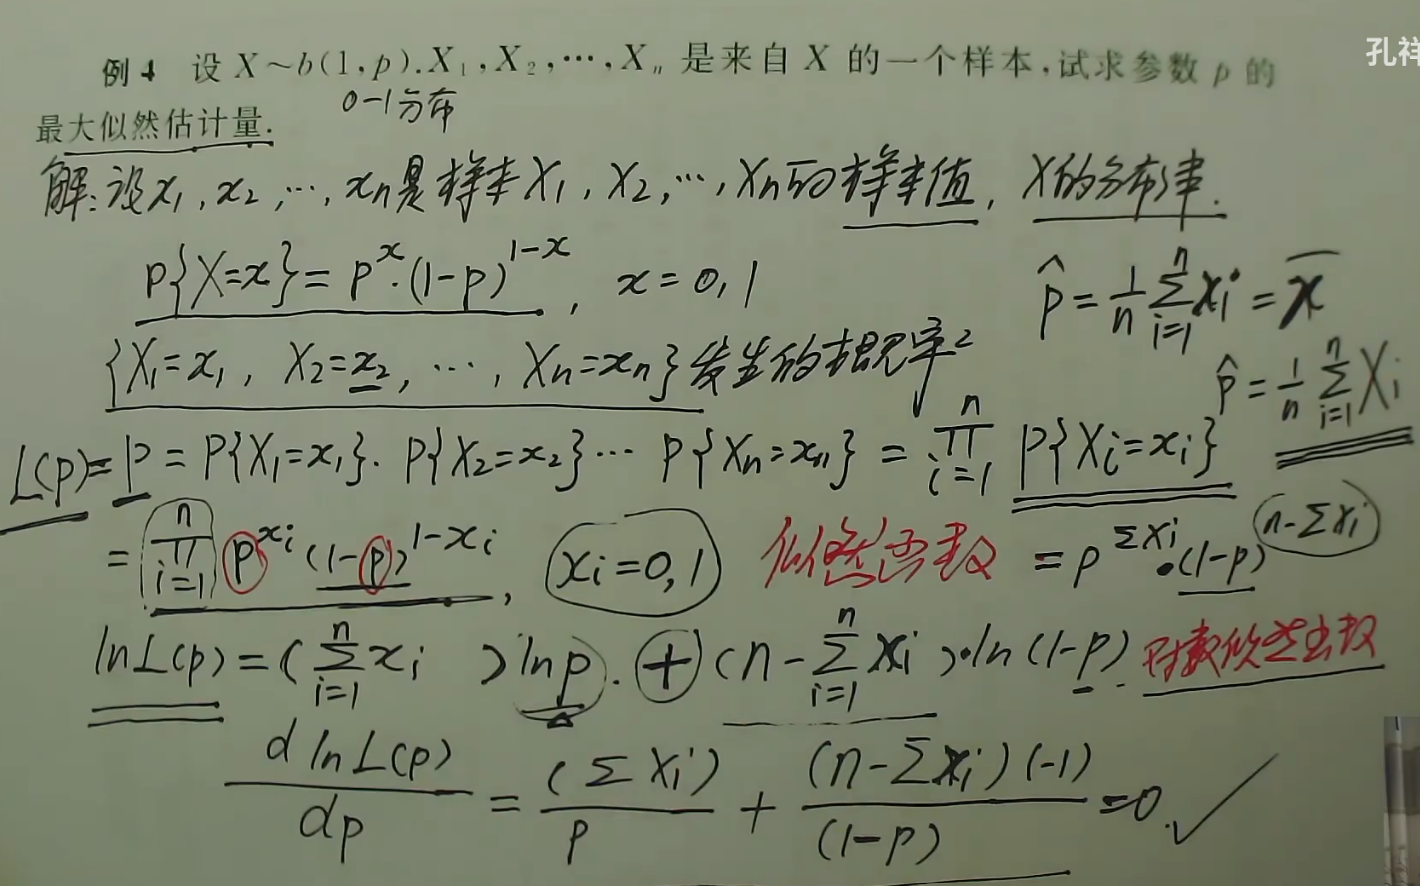 孔祥
例 4 设 X～b(1,p).X₁,X₂,…,Xₙ 是来自 X 的一个样本,试求参数 p 的
最大似然估计量.
0-1分布
解:设x₁,x₂,…,xₙ是样本X₁,X₂,…,Xₙ的样本值, X的分布律.
P{X=x}=p^x·(1-p)^(1-x), x=0,1
p̂=1/n ∑_{i=1}^{n} xᵢ=x̄
{X₁=x₁, X₂=x₂, …, Xₙ=xₙ}发生的概率
p̂=1/n ∑_{i=1}^{n} Xᵢ
L(p)=P=P{X₁=x₁}·P{X₂=x₂}…P{Xₙ=xₙ}=∏_{i=1}^{n} P{Xᵢ=xᵢ}
=∏_{i=1}^{n} p^{xᵢ}(1-p)^{1-xᵢ}, xᵢ=0,1 似然函数 =p^{∑xᵢ}·(1-p)^{n-∑xᵢ}
lnL(p)=(∑_{i=1}^{n} xᵢ)lnp.+(n-∑_{i=1}^{n} xᵢ)·ln(1-p). 对数似然函数
d lnL(p)/dp=(∑xᵢ)/p+(n-∑xᵢ)(-1)/(1-p)=0.✓